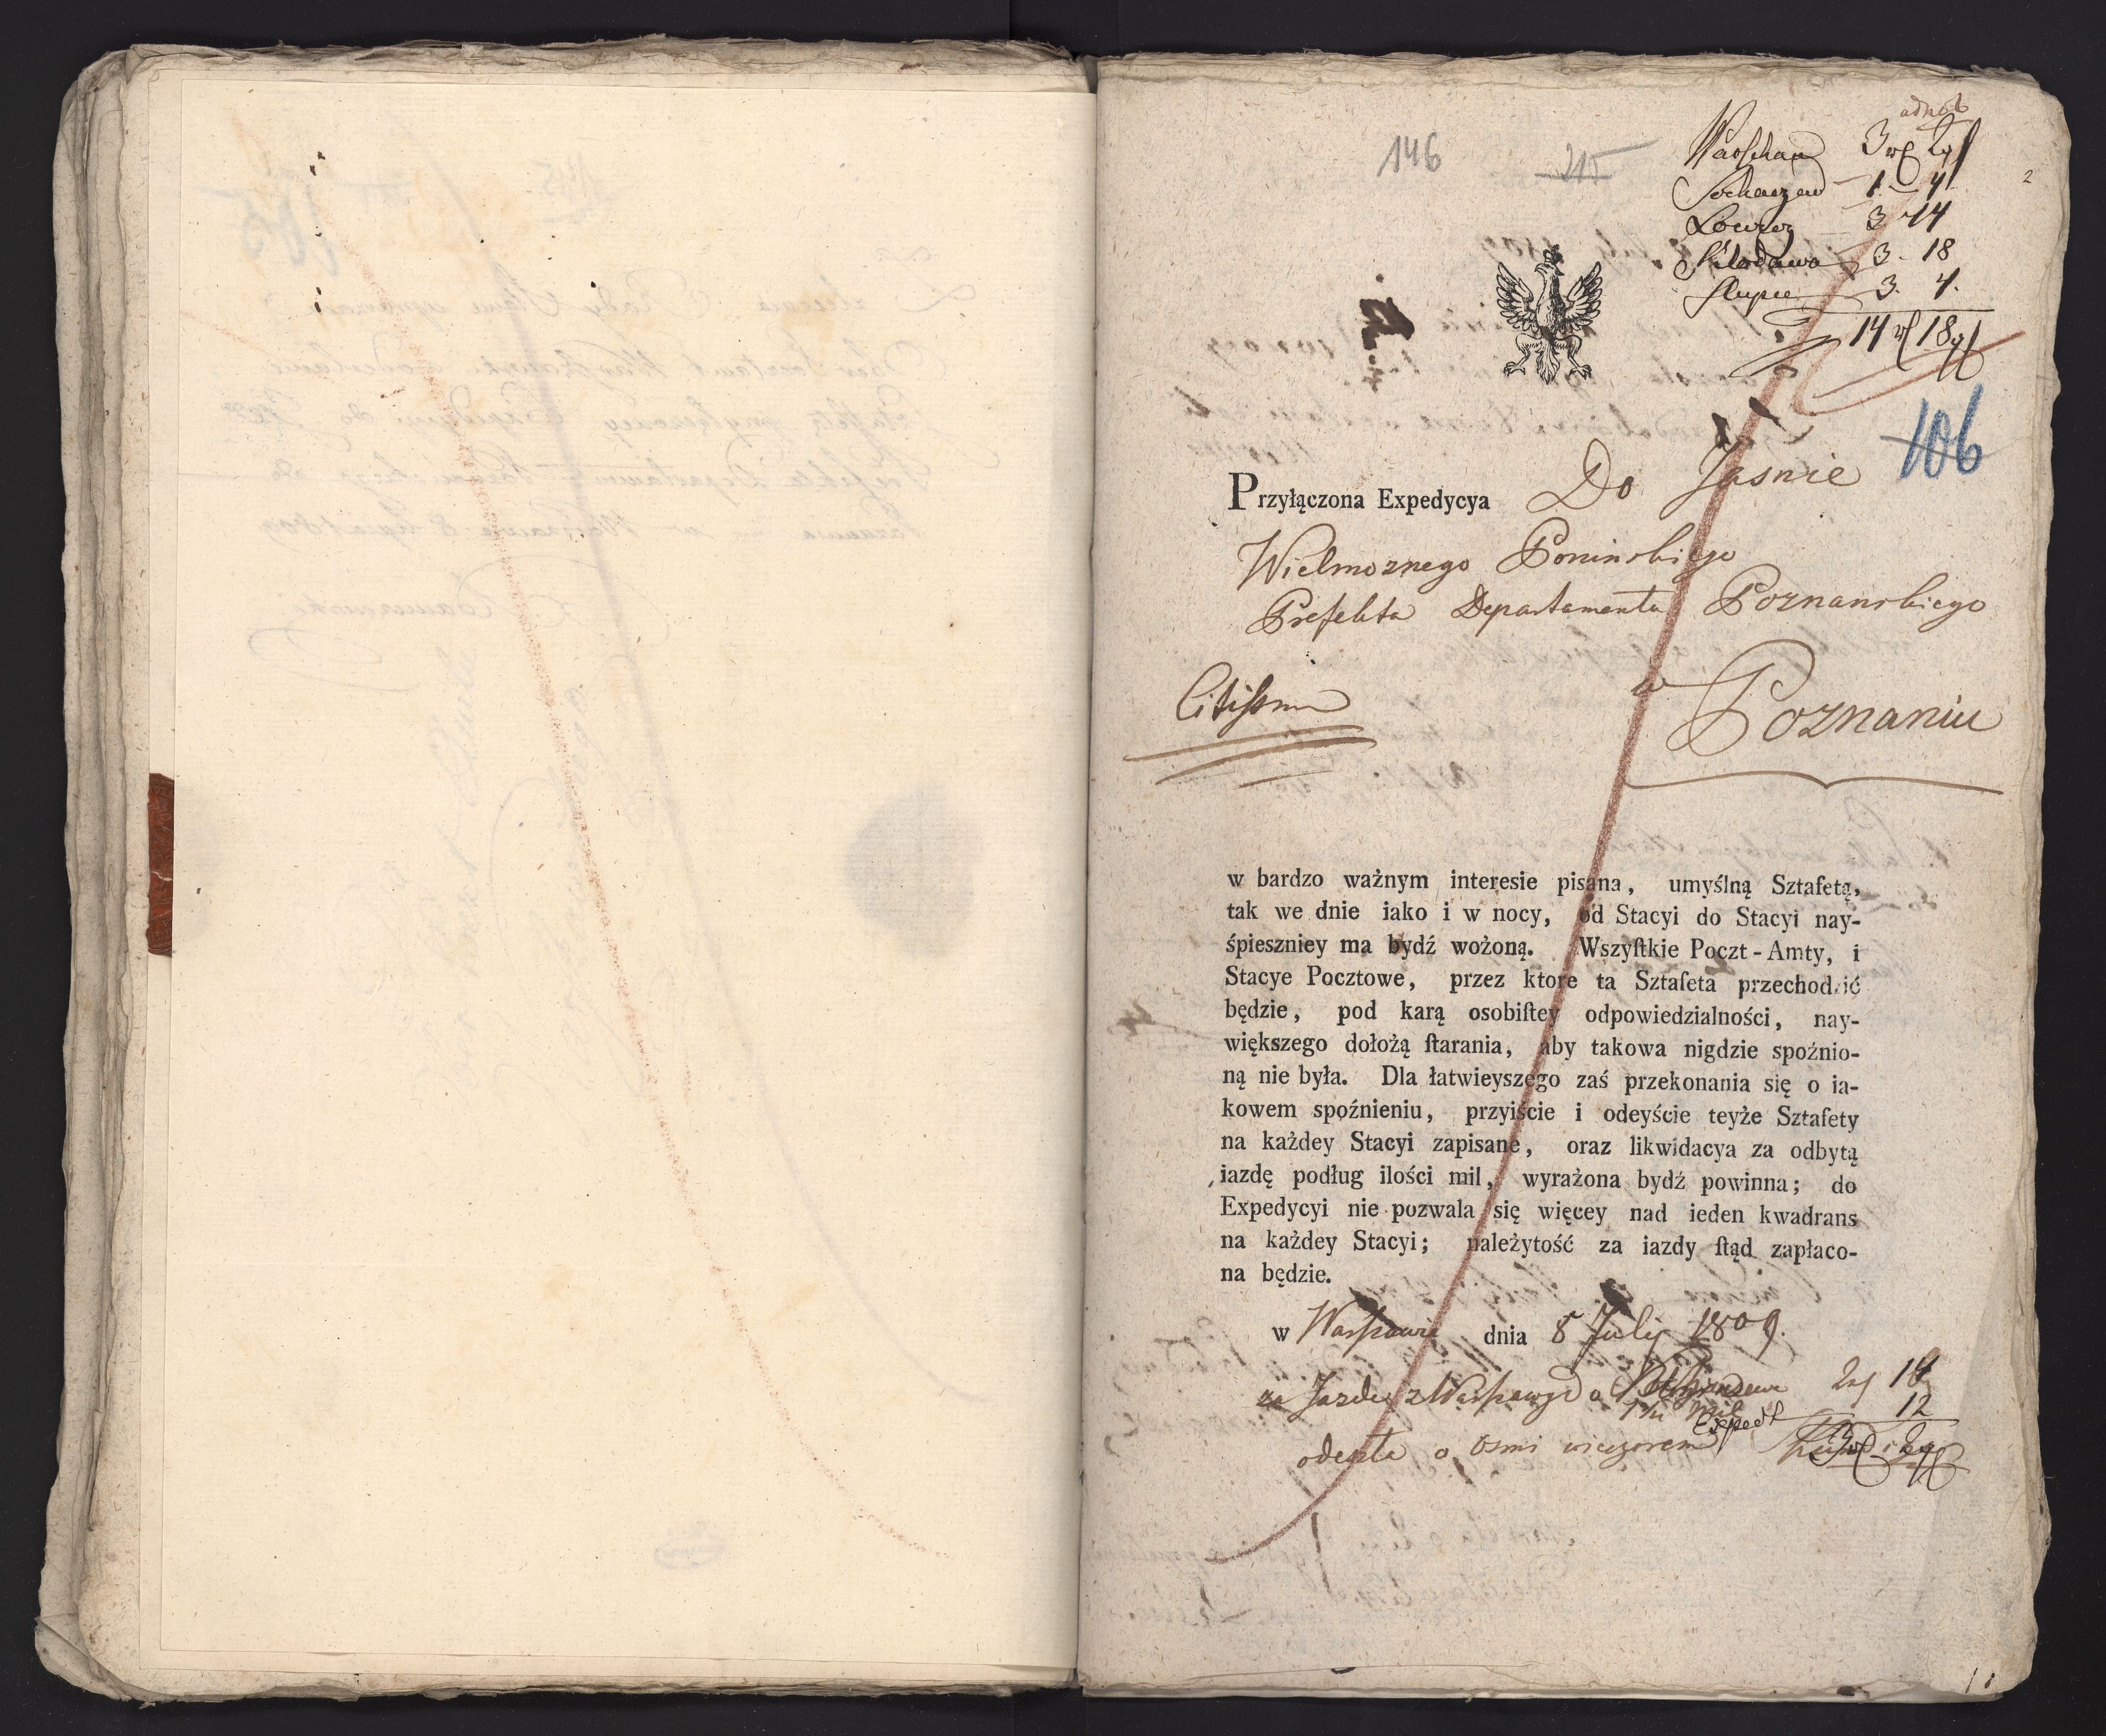 146
215
2
Warschau 3 rf 2 g
Sochaczew 1 - 4
Łowicz 3 - 14
Kłodawa 3 - 18
Słupce 3. 4.
14 rf 18 g
106
Przyłączona Expedycya Do Jasnie
Wielmoznego Poninskiego
Prefekta Departamentu Poznanskiego
Citissime
w
Poznaniu
w bardzo ważnym interesie pisana, umyślną Sztafetą,
tak we dnie iako i w nocy, od Stacyi do Stacyi nay-
śpieszniey ma bydź wożoną. Wszyſtkie Poczt-Amty, i
Stacye Pocztowe, przez ktore ta Sztafeta przechodzić
będzie, pod karą osobiſtey odpowiedzialności, nay-
większego dołożą ſtarania, aby takowa nigdzie spoźnio-
ną nie była. Dla łatwieyszego zaś przekonania się o ia-
kowem spoźnieniu, przyiście i odeyście teyże Sztafety
na każdey Stacyi zapisane, oraz likwidacya za odbytą
iazdę podług ilości mil, wyrażona bydź powinna; do
Expedycyi nie pozwala się więcey nad ieden kwadrans
na każdey Stacyi; należytość za iazdy ſtąd zapłaco-
na będzie.
w Warszawie dnia 8 July 1809.
za Jazdę z Warszawy do 2 rf 14
Mil
Exped 12
odeszła o osmi wieczorem